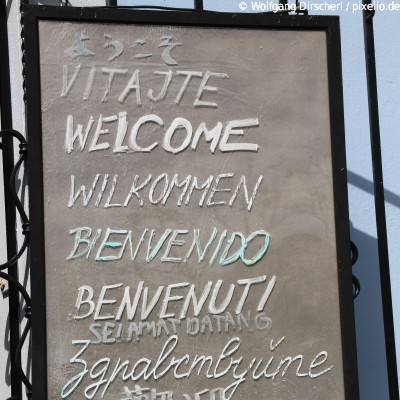 © Wolfgang Dirscherl / pixelio.de
ようこそ
VITAJTE
WELCOME
WILKOMMEN
BIENVENIDO
BENVENUTI
SELAMAT DATANG
Здравствуйте